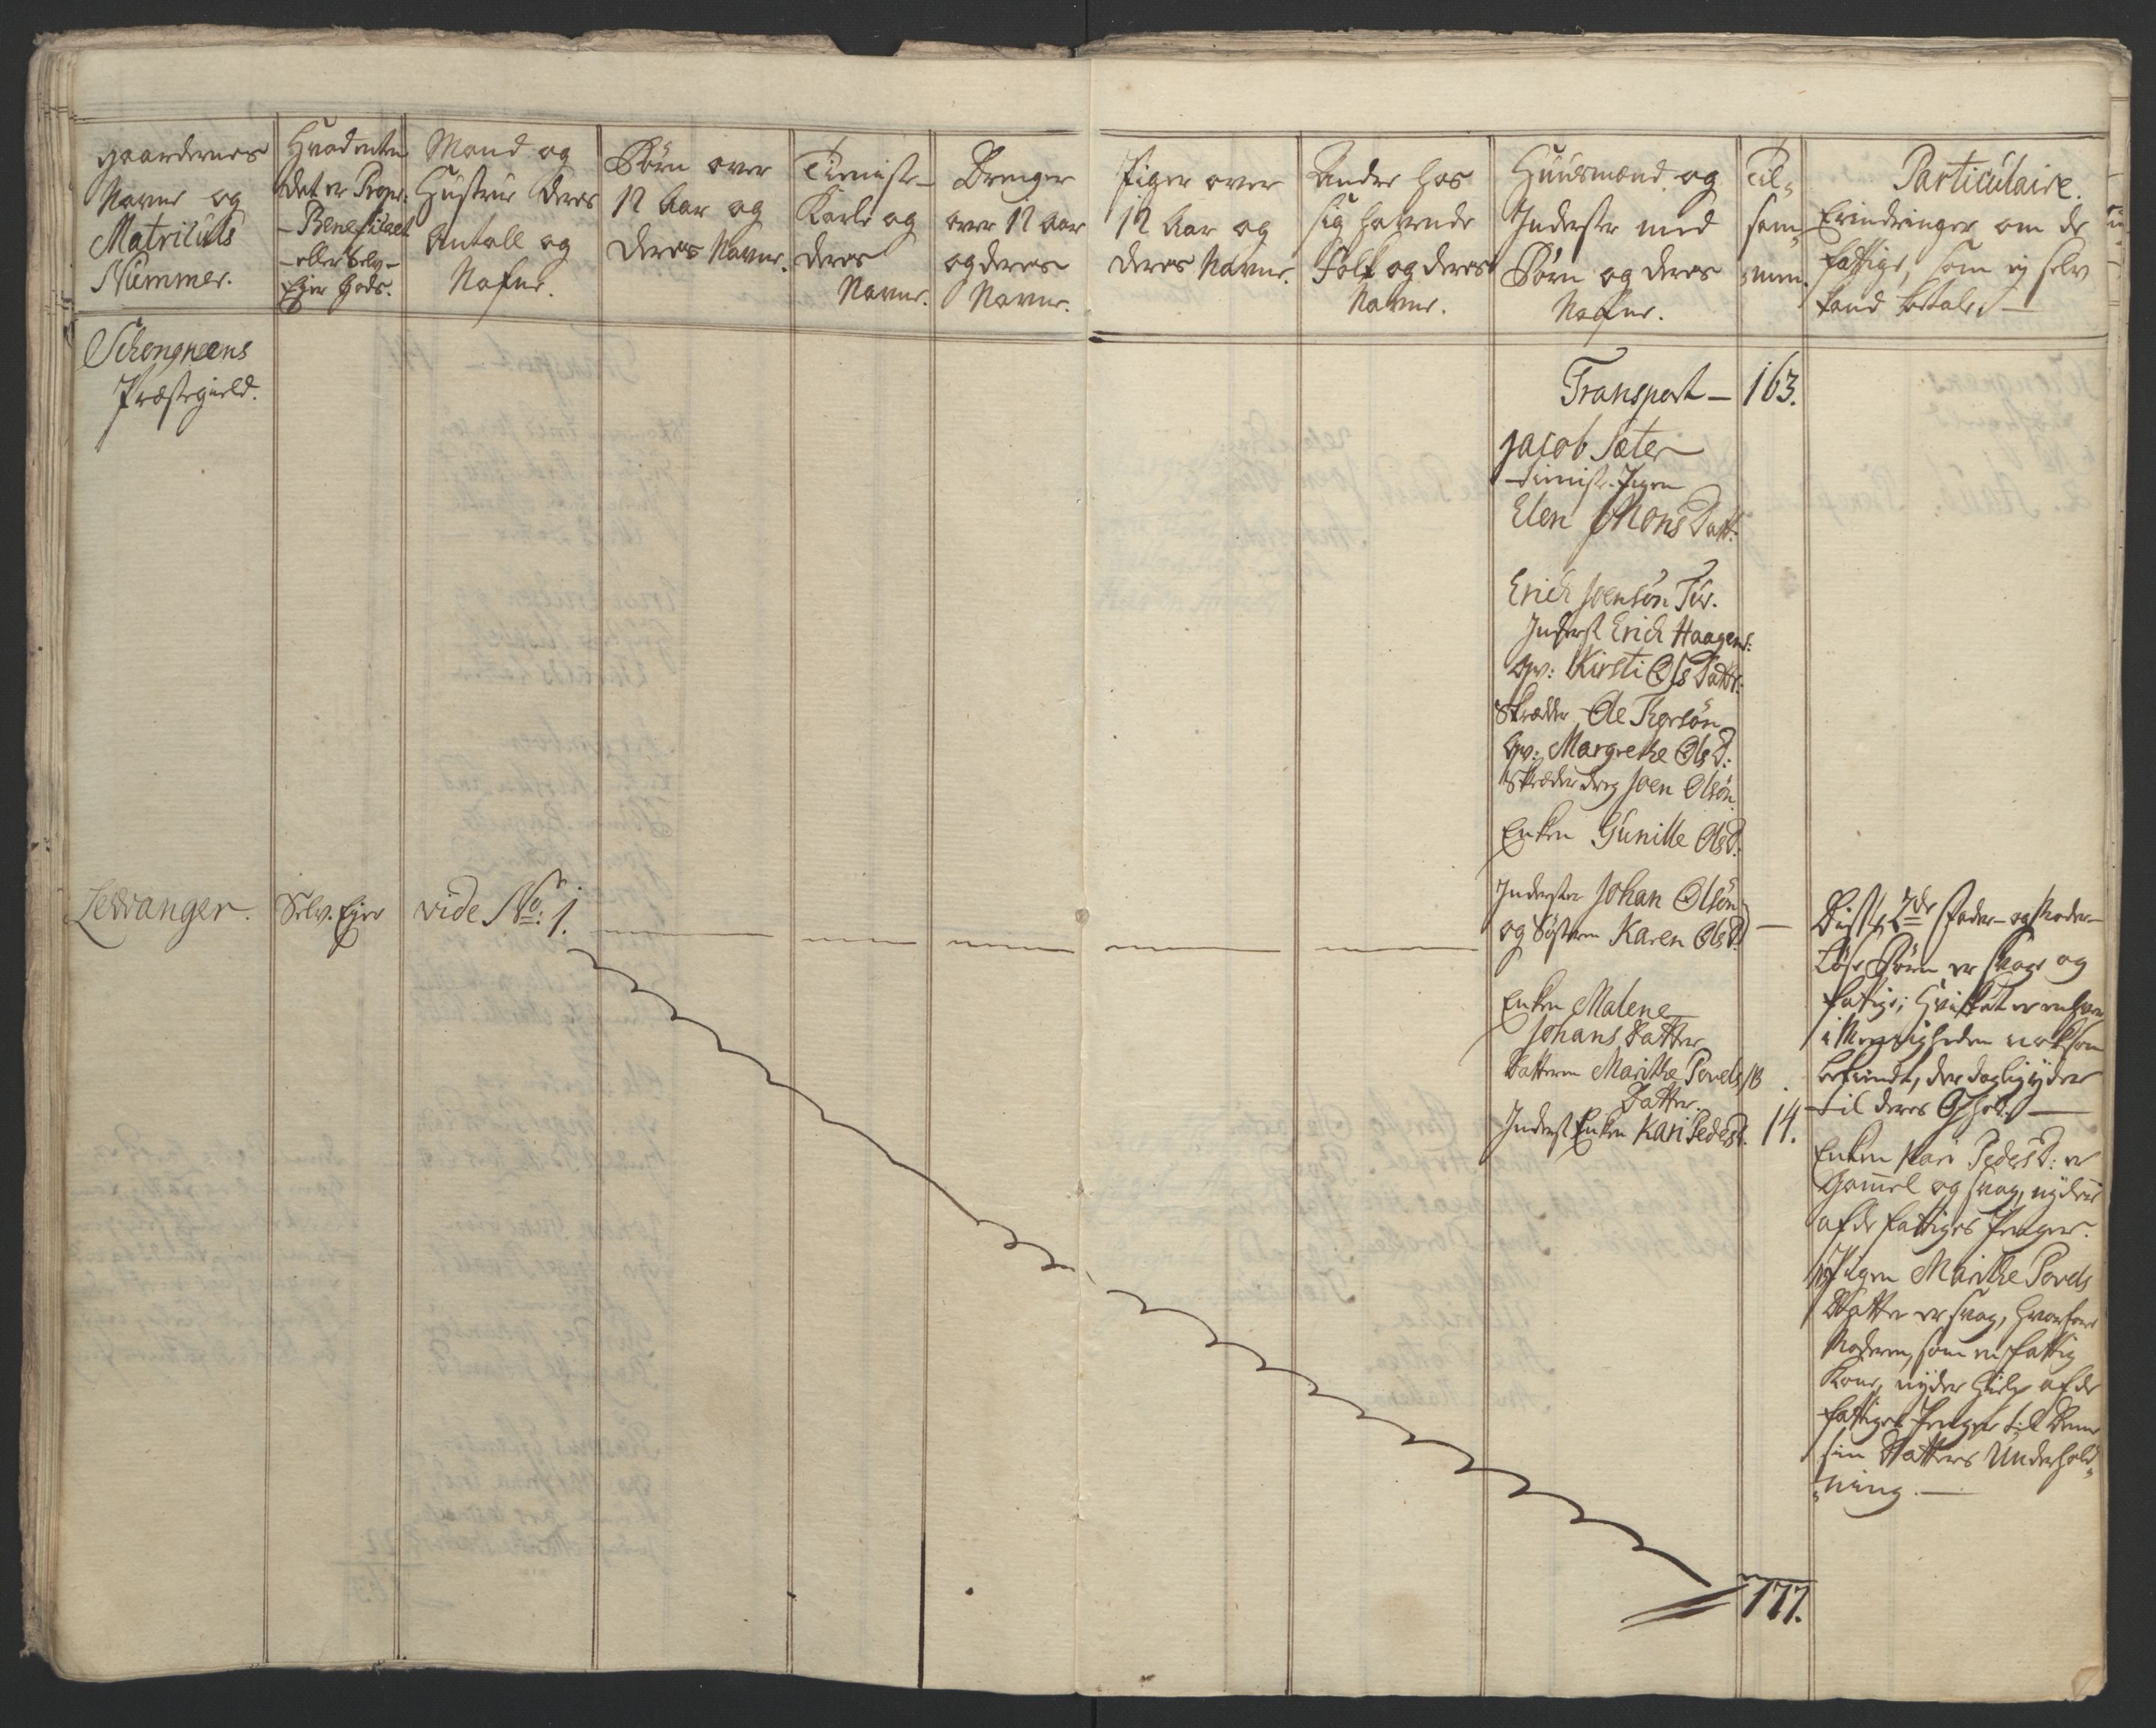 Gaardernes
Navne og
Matriculs
Nummer.
Hvad enten
det er Propr:
- Beneficeret
- eller Selv-
Ejer Gods.
Mand og
Hustrue deres
Antall og
Nafne.
Børn over
12 Aar og
deres Navne.
Tieniste-
Karle og
deres
Navne.
Drenger
over 12 Aar
og deres
Navne.
Piger over
12 Aar og
deres Navne.
Andre hos
sig havende
Folk og deres
Navne.
Huusmænd og
Inderster med
Børn og deres
Nafne.
Til-
sam-
men.
Particulaire.
Erindringer om de
fattige, som ej selv
kand betale. —
Schongneens
Præstegield.
Transport — 163.
Jacob Sæter
Tieniste Pigen
Elen Mons Datt:
Erich Joensøn Tør.
Inderst Erich Haagens:
Qv: Kirsti Ols Dattr:
Skrædder Ole Thorsøn
Qv: Margrethe Ols D:
Skræder dreg Joen Olsøn
Enken Gunille Ols D:
Levanger.
Selv. Ejer
vide No: 1.
Inderster Johan Olsøn
og Søsteren Karen Ols D: —
Enken Malene
Johans Datter
Datteren Marithe Povels
Datter.
Inderst Enken Kari Peders D. 14.
Disse 2de Fader- og Moder-
Løse Børn er svage og
fatige; hvilket er enhver
i Menigheden noksom
bekiendt, der daglig yder
til deres Ophold. —
Enken Kari Peders D: er
Gammel og svag, nyder
af de fattiges Penger.
Pigen Marithe Povels
Datter er svag, hvorfore
Moderen, som en fattig
Kone, nyder hielp af de
fattiges Penger til Denne
sin Datters Underhold-
ning. —
177.